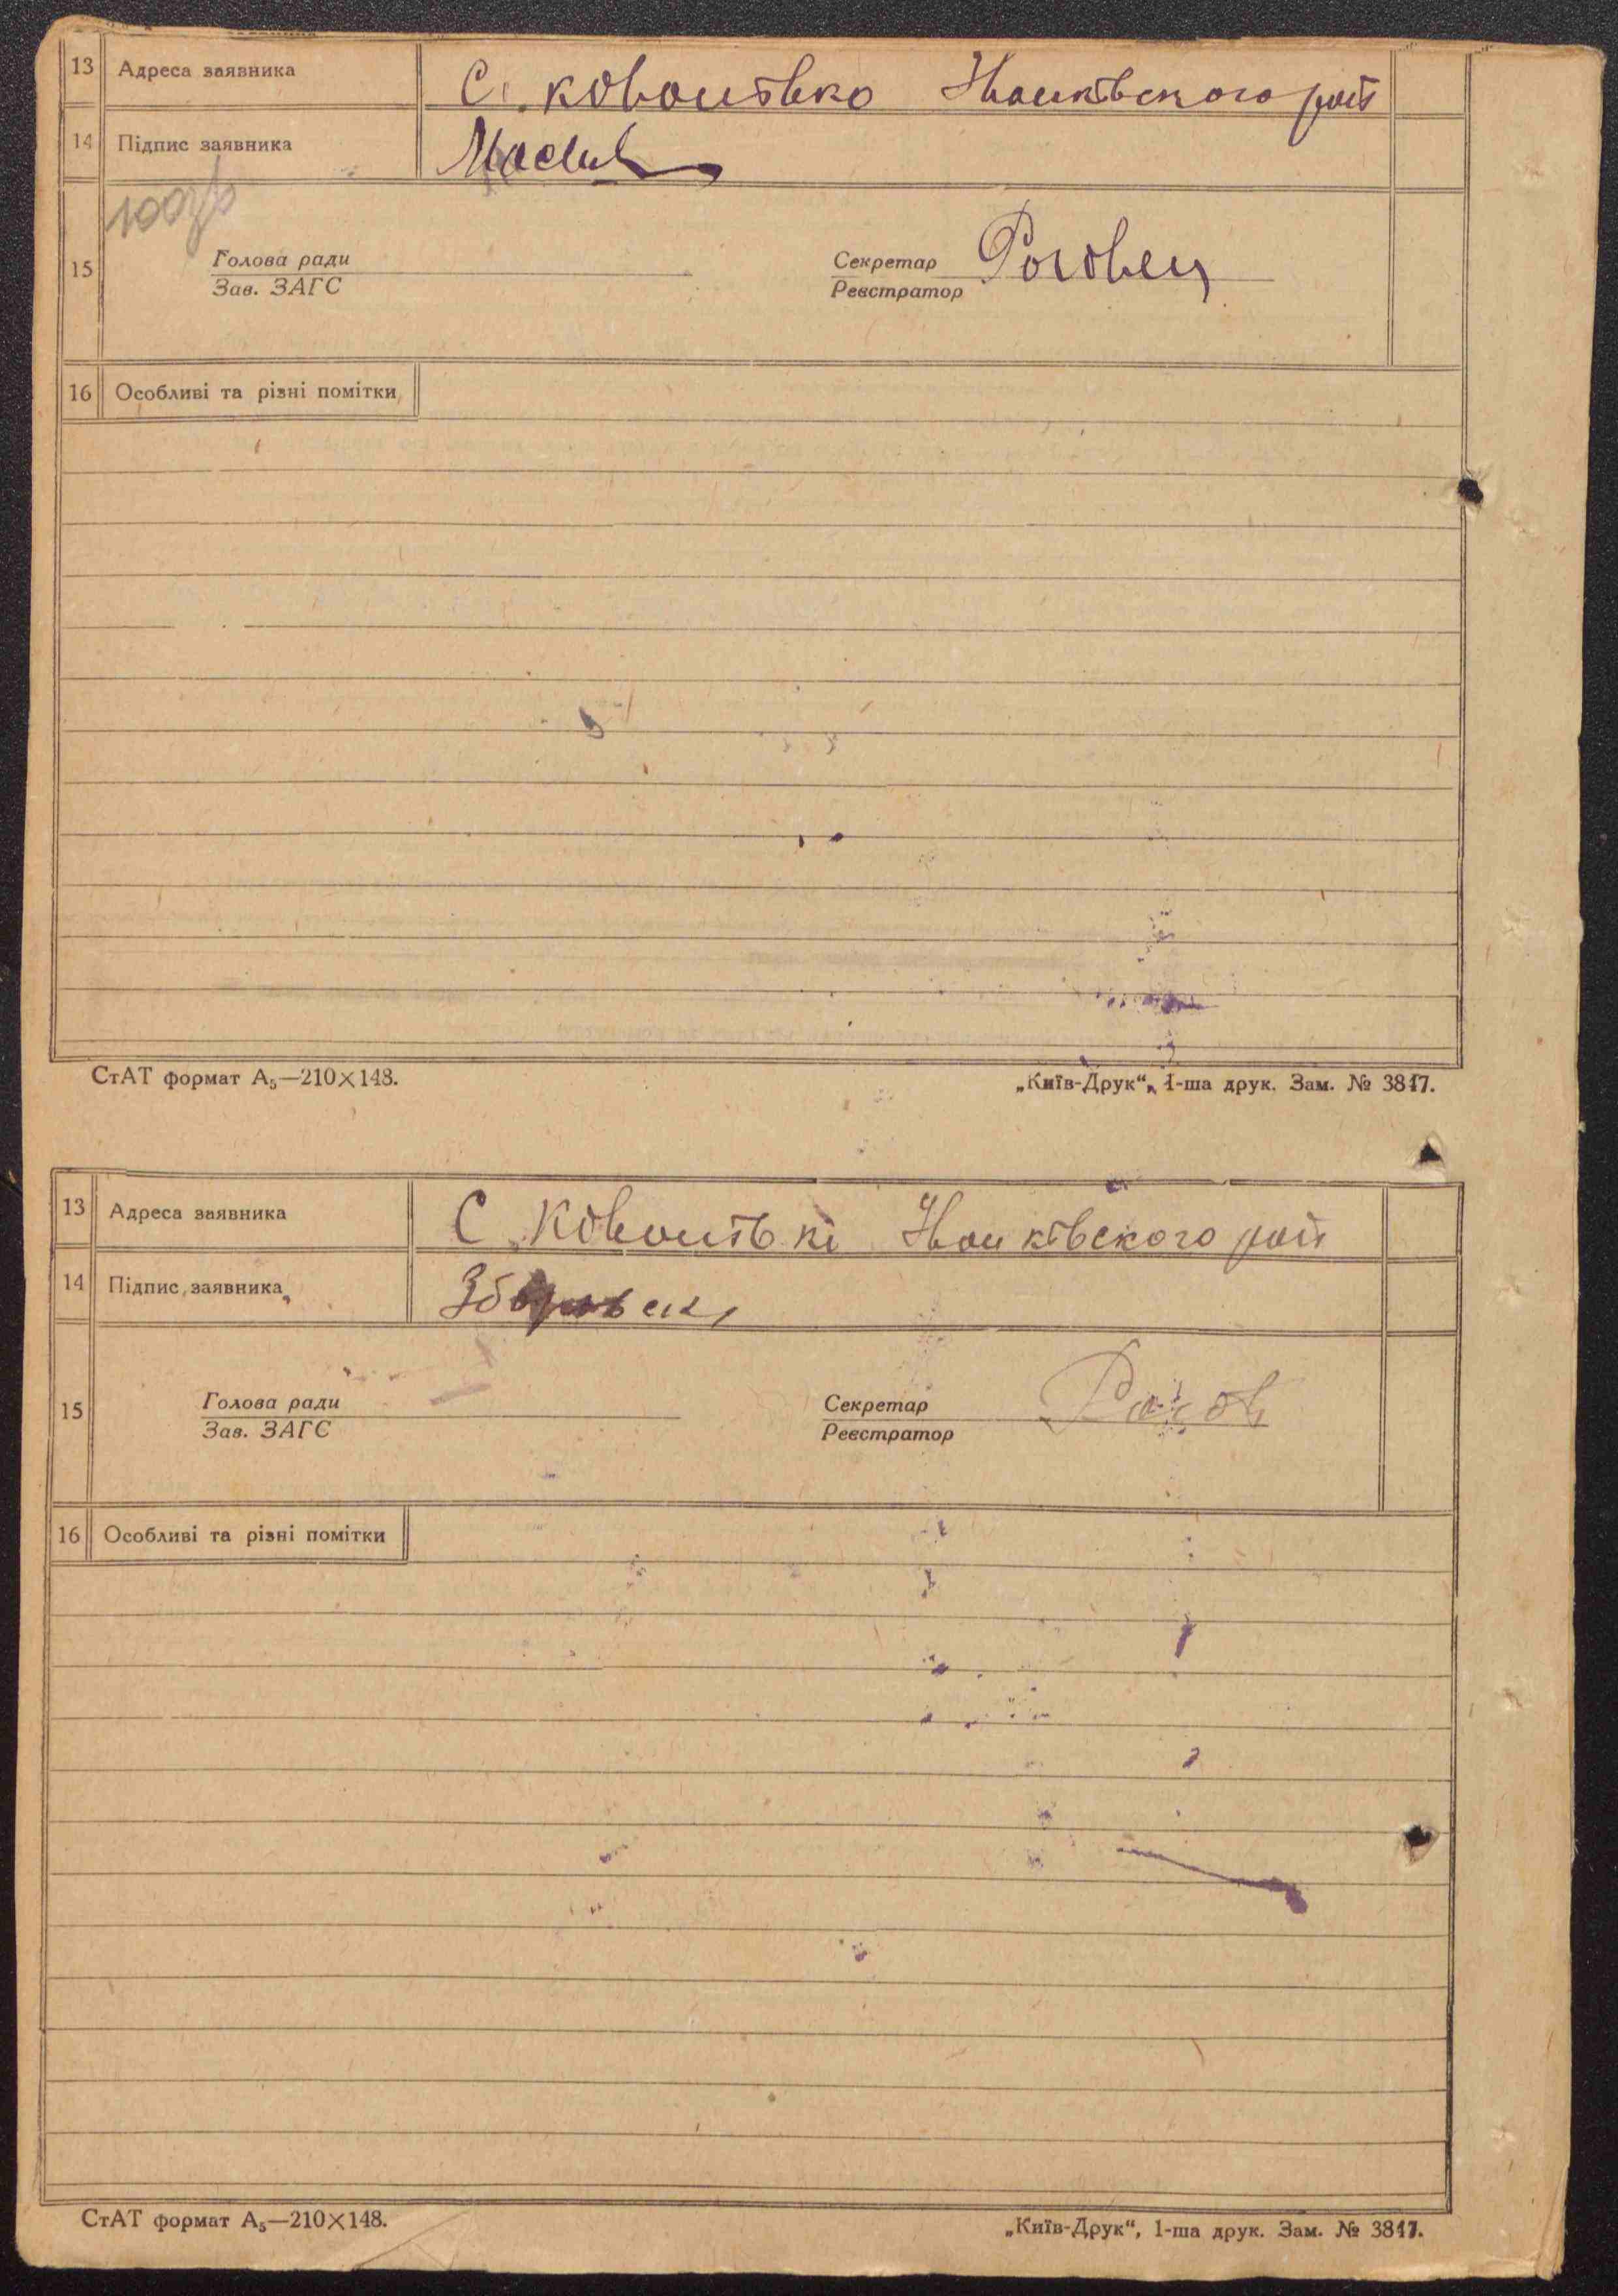 13 Адреса заявника С. Коваливко Іванківского рай
14 Підпис заявника
15 Голова ради
Зав. ЗАГС
Секретар Роговец
Реєстратор
16 Особливі та різні помітки
СтАТ формат А₅—210×148. „Київ-Друк“, 1-ша друк. Зам. № 3817.
13 Адреса заявника С Іванківского рай
14 Підпис заявника
15 Голова ради
Зав. ЗАГС
Секретар
Реєстратор
16 Особливі та різні помітки
СтАТ формат А₅—210×148. „Київ-Друк“, 1-ша друк. Зам. № 3817.